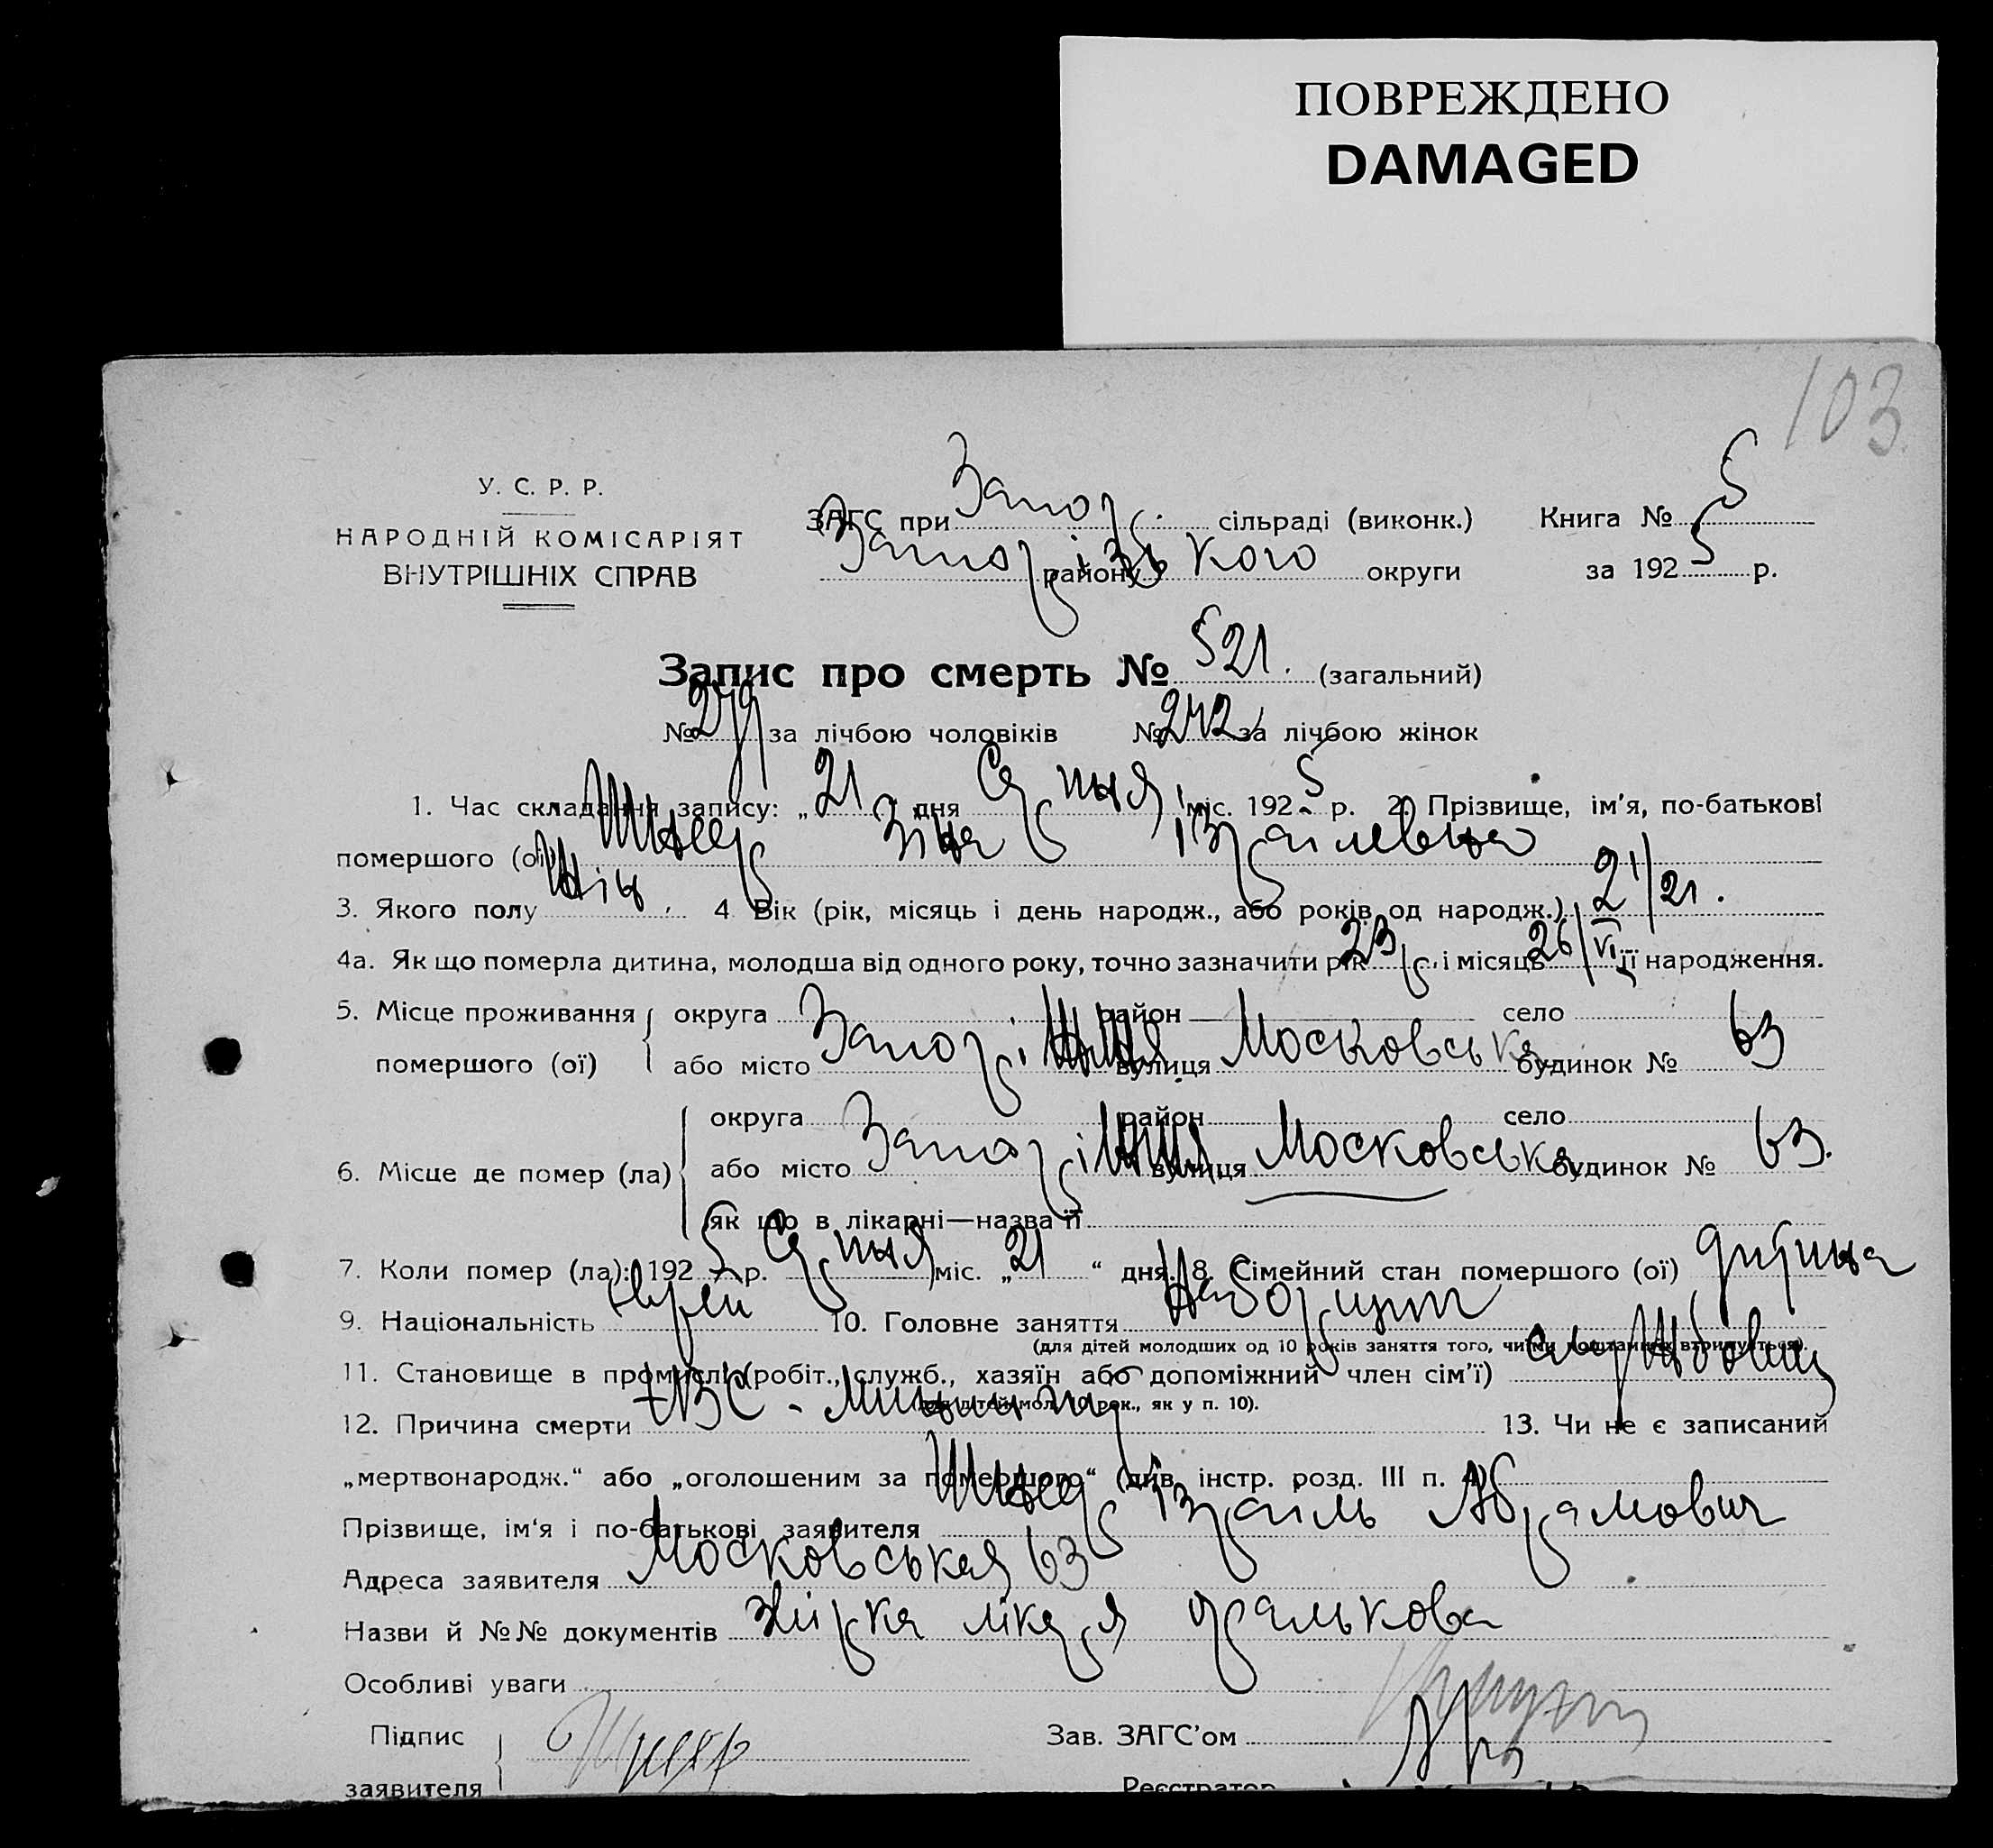 ПОВРЕЖДЕНО
DAMAGED
103
У. С. Р. Р.
НАРОДНІЙ КОМІСАРІЯТ
ВНУТРІШНІХ СПРАВ
ЗАГС при Запор. сільраді (виконк.) Книга № 5
Запорізького району округи за 1925 р.
Запис про смерть № 521. (загальний)
№ 279 за лічбою чоловіків № 242 за лічбою жінок
1. Час складання запису: „21“ дня Серпня міс. 1925 р. 2. Прізвище, ім’я, по-батькові
помершого (ої) Шнеер Зіна Ізраілевна
3. Якого полу жін. 4 Вік (рік, місяць і день народж., або років од народж.)
4а. Як що померла дитина, молодша від одного року, точно зазначити рік 23 р. і місяць 26/VI її народження.
5. Місце проживання округа район село
помершого (ої) або місто Запоріжжя вулиця Московська будинок № 63
округа район село
6. Місце де помер (ла) або місто Запоріжжя вулиця Московська будинок № 63.
як що в лікарні—назва її
7. Коли помер (ла): 1925 р. Серпня міс. „21“ дня. 8. Сімейний стан помершого (ої) дитина
9. Національність Еврей 10. Головне заняття
(для дітей молодших од 10 років заняття того, чиїми коштами втримується).
11. Становище в промислі (робіт., служб., хазяїн або допоміжний член сім’ї) службовец
(для дітей мол. 10 рок., як у п. 10).
12. Причина смерти 13. Чи не є записаний
„мертвонародж.“ або „оголошеним за померлого“ (див. інстр. розд. III п. 4)
Прізвище, ім‘я і по-батькові заявителя Шнеер Ізраіль Абрамович
Адреса заявителя Московськая 63
Назви й №№ документів лікаря Фалькова
Особливі уваги
Підпис Зав. ЗАГС’ом
заявителя Реєстратор